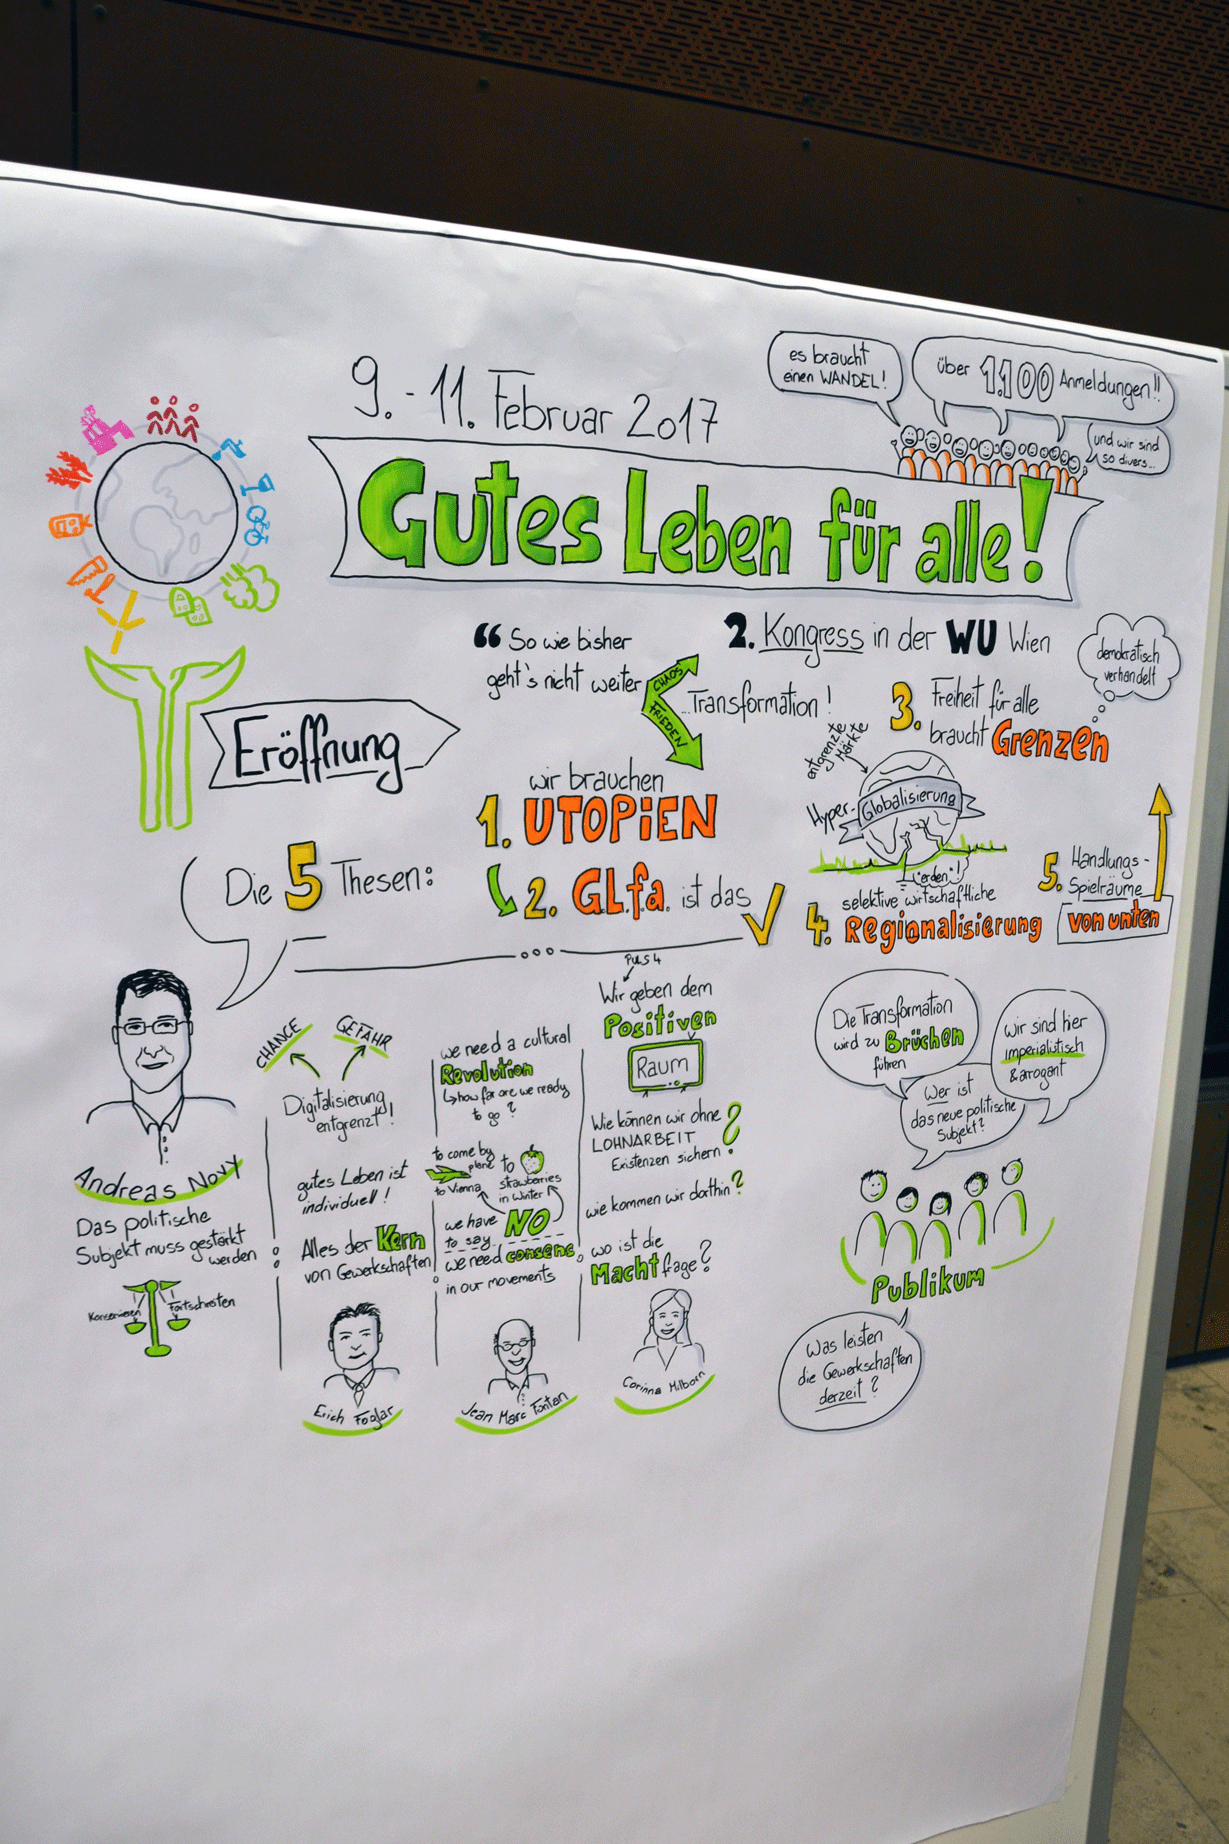 9. - 11. Februar 2017
es braucht
einen WANDEL!
über 1.100 Anmeldungen!!
und wir sind
so divers...
Gutes Leben für alle!
2. Kongress in der WU Wien
Eröffnung
“ So wie bisher
geht's nicht weiter
CHAOS
FRIEDEN
...Transformation!
Die 5 Thesen:
wir brauchen
1. UTOPiEN
2. G.L.f.a. ist das
3. Freiheit für alle
braucht Grenzen
demokratisch
verhandelt
entgrenzte
Märkte
Hyper-
Globalisierung
erden!
selektive wirtschaftliche
4. Regionalisierung
5. Handlungs-
Spielräume
von unten
Andreas Novy
Das politische
Subjekt muss gestärkt
werden
Konservieren
Fortschreiten
CHANCE
GEFAHR
Digitalisierung
entgrenzt!
gutes Leben ist
individuell!
Alles der Kern
von Gewerkschaften
Erich Foglar
we need a cultural
Revolution
↳ how far are we ready
to go?
to come by
plane
to Vienna
to
strawberries
in winter
we have
to say
NO
we need consens
in our movements
Jean Marc Fontan
PULS 4
Wir geben dem
Positiven
Raum
Wie können wir ohne
LOHNARBEIT
Existenzen sichern?
wie kommen wir dorthin?
wo ist die
Machtfrage?
Corinna Milborn
Die Transformation
wird zu Brüchen
führen
wir sind hier
imperialistisch
& arrogant
Wer ist
das neue politische
Subjekt?
Publikum
Was leisten
die Gewerkschaften
derzeit?